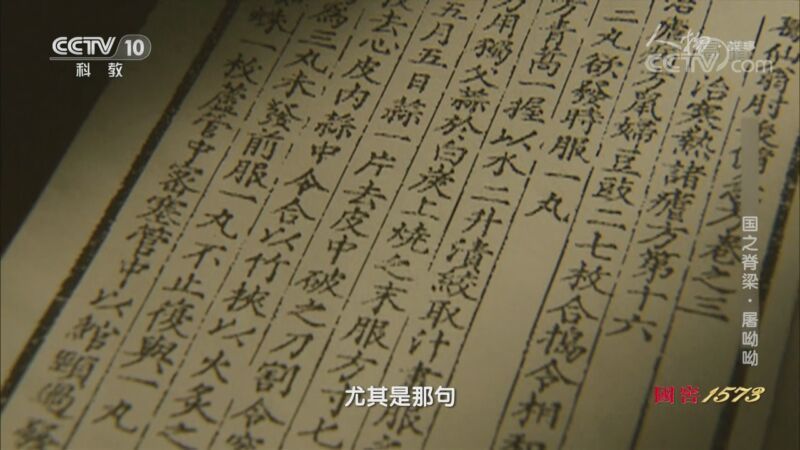 CCTV 10
科教
人物·故事
CCTV.com
葛仙翁肘後備急方卷之三
治寒熱諸瘧方第十六
治瘧病方鼠婦豆豉二七枚合搗令相和
二丸欲發時服一丸
方青蒿一握以水二升漬絞取汁盡服之
方用獨父蒜於白炭上燒之末服方寸七
五月五日蒜一片去皮中破之刀割令容
去心皮內蒜中令合以竹挾以火炙之
為三丸未發前服一丸不止復與一丸
蛛一枚蘆管中密塞管中以綰頸過發
国之脊梁·屠呦呦
國窖1573
尤其是那句